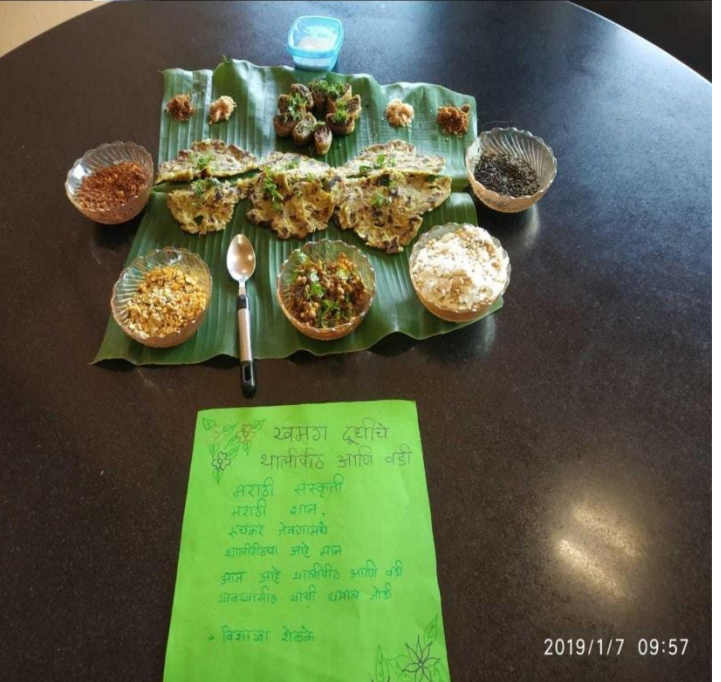 खमंग दूधीचे
थालीपीठ आणि वडी
मराठी संस्कृती
मराठी शान,
रुचकर जेवणामधे
थालीपीठचा आहे मान
आज आहे थालीपीठ आणि वडी
यांची धमाल जोडी
विशाखा शेळके
2019/1/7 09:57